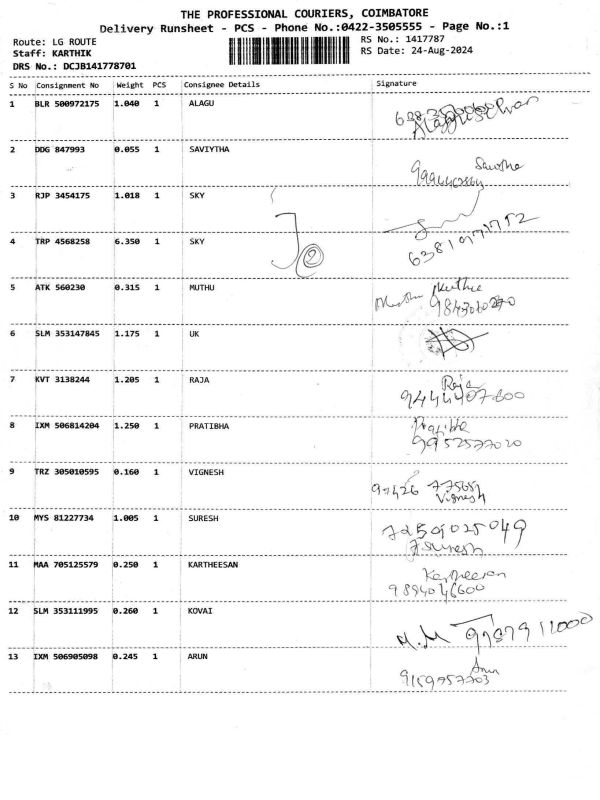 THE PROFESSIONAL COURIERS, COIMBATORE
Delivery Runsheet - PCS - Phone No.:0422-3505555 - Page No.:1
Route: LG ROUTE RS No.: 1417787
Staff: KARTHIK RS Date: 24-Aug-2024
DRS No.: DCJB141778701
S No Consignment No Weight PCS Consignee Details Signature
1 BLR 500972175 1.040 1 ALAGU
2 DDG 847993 0.055 1 SAVIYTHA
3 RJP 3454175 1.018 1 SKY
2
4 TRP 4568258 6.350 1 SKY
6381971752
5 ATK 560230 0.315 1 MUTHU Muthu
6 SLM 353147845 1.175 1 UK
7 KVT 3138244 1.205 1 RAJA Raja
9444407600
8 IXM 506814204 1.250 1 PRATIBHA Pratibha
9952577020
9 TRZ 305010595 0.160 1 VIGNESH
Vignesh
10 MYS 81227734 1.005 1 SURESH 7250025049
J Suresh
11 MAA 705125579 0.250 1 KARTHEESAN Kartheesan
9894046600
12 SLM 353111995 0.260 1 KOVAI
M.M 9787911000
13 IXM 506905098 0.245 1 ARUN Arun
9159757703